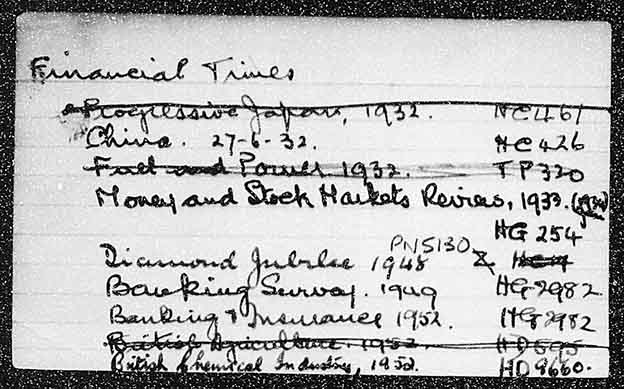 Financial Times
Progressive Japan, 1932. HC461
China. 27-6-32. HC426
Fuel and Power 1932. TP320
Money and Stock Markets Review, 1933. (1934)
HG 254
PN5130
Diamond Jubilee 1948 Z
Banking Survey. 1949 HG2982
Banking & Insurance 1952. HG2982
British Agriculture. 1952. HD595
British Chemical Industry, 1952. HD9660.